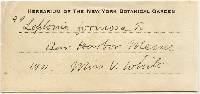 HERBARIUM OF THE NEW YORK BOTANICAL GARDEN
99
Leptonia formosa Fr.
Bar Harbor Maine
1901. Miss V. White